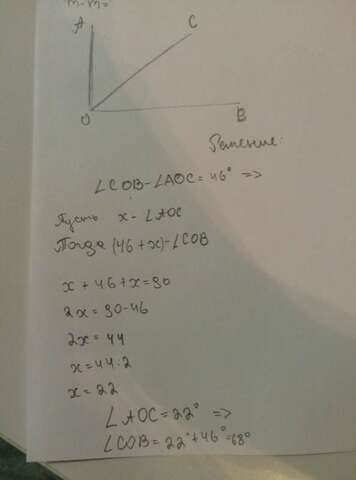 A
C
O
B
Решение:
∠COB-∠AOC=46° =>
Пусть x-∠AOC
Тогда (46+x)-∠COB
x+46+x=90
2x=90-46
2x=44
x=44:2
x=22
∠AOC=22° =>
∠COB=22°+46°=68°